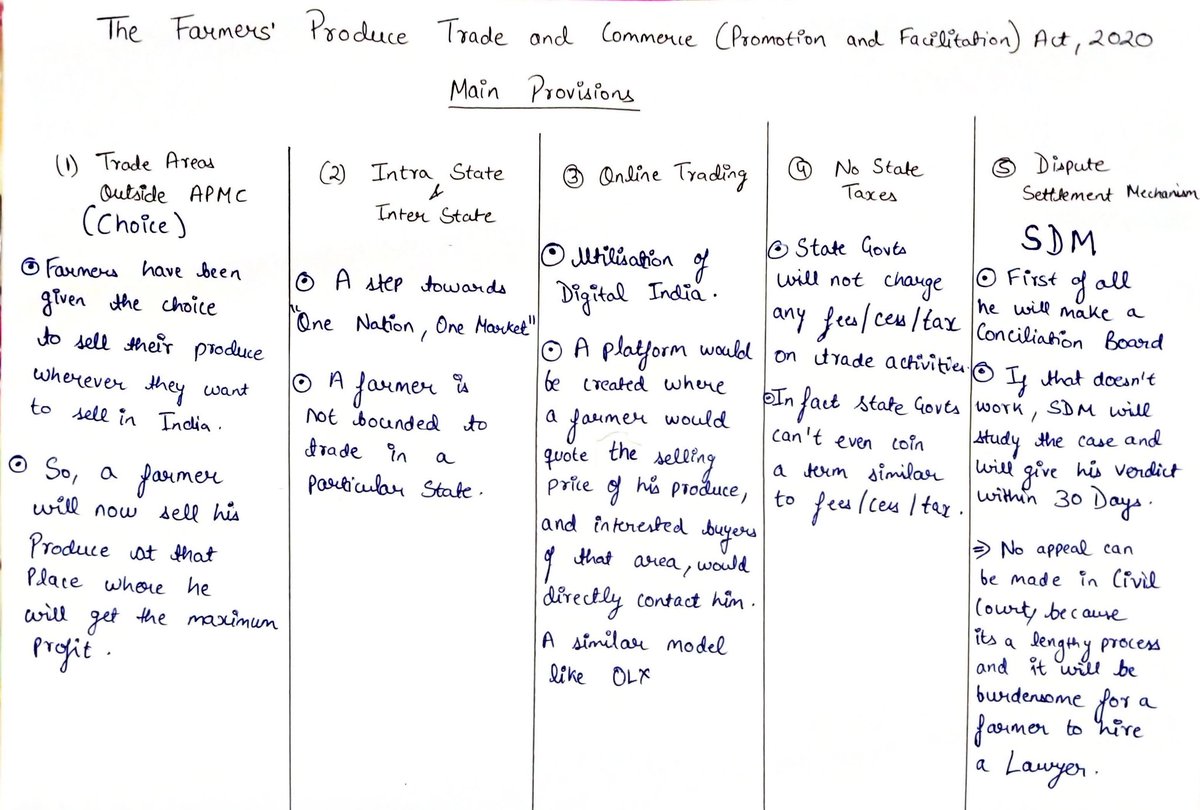 The Farmers' Produce Trade and Commerce (Promotion and Facilitation) Act, 2020
Main Provisions
(1) Trade Areas
Outside APMC
(Choice)
Farmers have been
given the choice
to sell their produce
wherever they want
to sell in India.
So, a farmer
will now sell his
Produce at that
Place where he
will get the maximum
Profit.
(2) Intra State
&
Inter State
A step towards
"One Nation, One Market"
A farmer is
not bounded to
trade in a
particular State.
③ Online Trading
Utilisation of
Digital India.
A platform would
be created where
a farmer would
quote the selling
price of his produce,
and interested buyers
of that area, would
directly contact him.
A similar model
like OLX
④ No State
Taxes
State Govts
will not charge
any fees/cess/tax
on trade activities.
In fact State Govts
can't even coin
a term similar
to fees/cess/tax.
⑤ Dispute
Settlement Mechanism
SDM
First of all
he will make a
Conciliation Board
If that doesn't
work, SDM will
study the case and
will give his verdict
within 30 Days.
⇒ No appeal can
be made in Civil
Court, because
its a lengthy process
and it will be
burdensome for a
farmer to hire
a Lawyer.